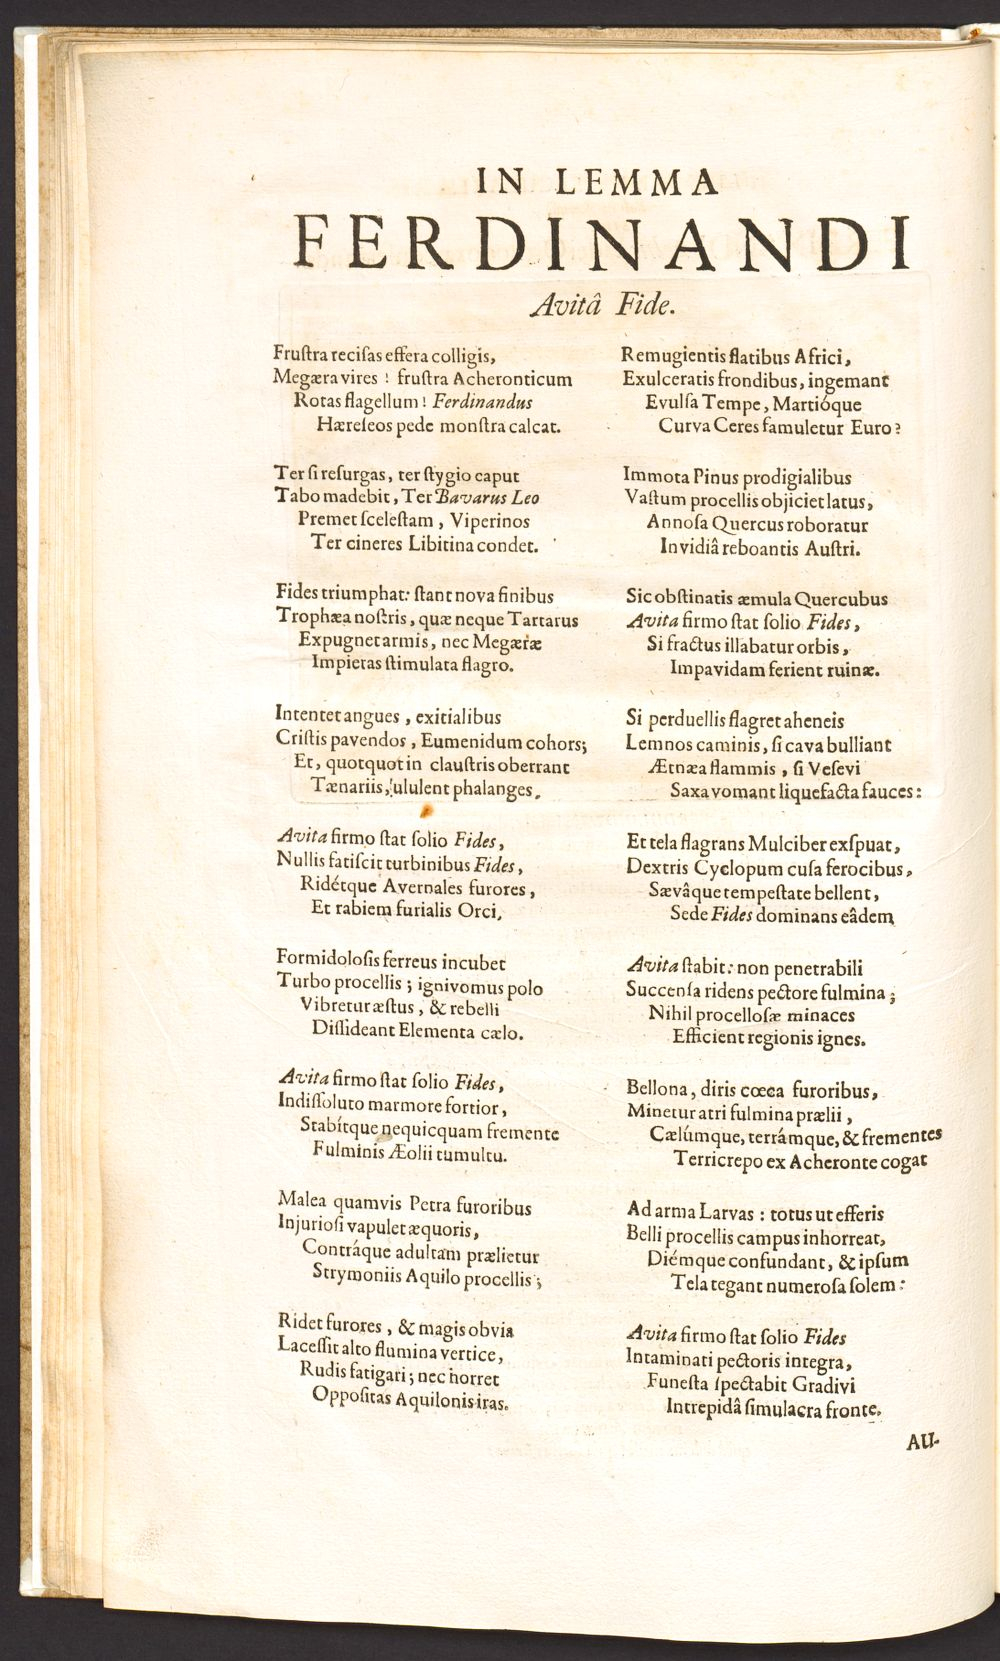 IN LEMMA
FERDINANDI
Avitâ Fide.
Frustra recisas effera colligis,
Megæra vires ! frustra Acheronticum
Rotas flagellum ! Ferdinandus
Hæreseos pede monstra calcat.
Ter si resurgas, ter stygio caput
Tabo madebit, Ter Bavarus Leo
Premet scelestam, Viperinos
Ter cineres Libitina condet.
Fides triumphat: stant nova finibus
Trophæa nostris, quæ neque Tartarus
Expugnet armis, nec Megæræ
Impietas stimulata flagro.
Intentet angues, exitialibus
Cristis pavendos, Eumenidum cohors;
Et, quotquot in claustris oberrant
Tænariis, ululent phalanges.
Avita firmo stat solio Fides,
Nullis fatiscit turbinibus Fides,
Ridétque Avernales furores,
Et rabiem furialis Orci.
Formidolosis ferreus incubet
Turbo procellis; ignivomus polo
Vibretur æstus, & rebelli
Dissideant Elementa cælo.
Avita firmo stat solio Fides,
Indissoluto marmore fortior,
Stabítque nequicquam fremente
Fulminis Æolii tumultu.
Malea quamvis Petra furoribus
Injuriosi vapulet æquoris,
Contráque adultam prælietur
Strymoniis Aquilo procellis;
Ridet furores, & magis obvia
Lacessit alto flumina vertice,
Rudis fatigari; nec horret
Oppositas Aquilonis iras.
Remugientis flatibus Africi,
Exulceratis frondibus, ingemant
Evulsa Tempe, Martióque
Curva Ceres famuletur Euro?
Immota Pinus prodigialibus
Vastum procellis objiciet latus,
Annosa Quercus roboratur
Invidiâ reboantis Austri.
Sic obstinatis æmula Quercubus
Avita firmo stat solio Fides,
Si fractus illabatur orbis,
Impavidam ferient ruinæ.
Si perduellis flagret aheneis
Lemnos caminis, si cava bulliant
Ætnæa flammis, si Vesevi
Saxa vomant liquefacta fauces:
Et tela flagrans Mulciber exspuat,
Dextris Cyclopum cusa ferocibus,
Sævâque tempestate bellent,
Sede Fides dominans eâdem
Avita stabit: non penetrabili
Succensa ridens pectore fulmina;
Nihil procellosæ minaces
Efficient regionis ignes.
Bellona, diris cœca furoribus,
Minetur atri fulmina prælii,
Cælúmque, terrámque, & frementes
Terricrepo ex Acheronte cogat
Ad arma Larvas : totus ut efferis
Belli procellis campus inhorreat,
Diémque confundant, & ipsum
Tela tegant numerosa solem:
Avita firmo stat solio Fides
Intaminati pectoris integra,
Funesta spectabit Gradivi
Intrepidâ simulacra fronte.
AU-